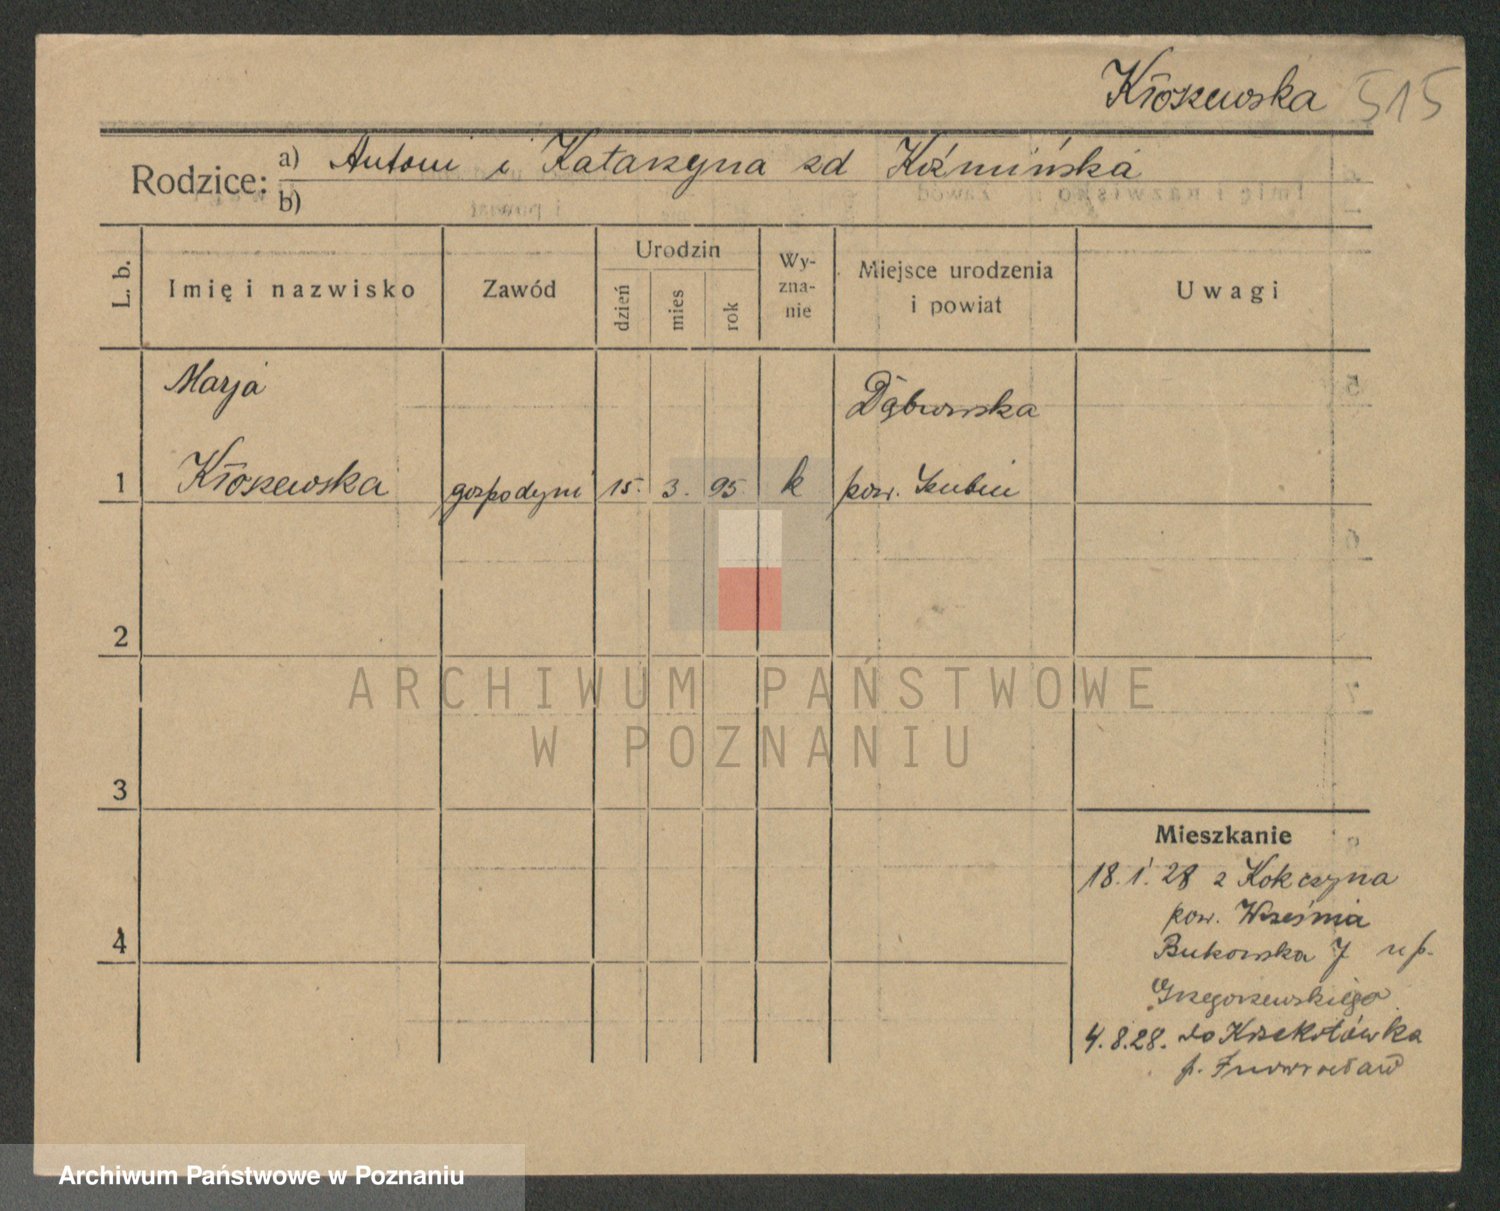 Kłoszewska 515
Rodzice: a) Antoni i Katarzyna zd Koźmińska
b)
L. b.
Imię i nazwisko
Zawód
Urodzin
dzień
mies
rok
Wy-
zna-
nie
Miejsce urodzenia
i powiat
Uwagi
Marja
Dąbrowska
1 Kłoszewska gospodyni 15. 3. 95 k pow. Szubin
2
ARCHIWUM PAŃSTWOWE
W POZNANIU
3
Mieszkanie
18.1.28 z Kokczyna
pow. Września
4
Bukowska 7 u p.
Grzegorzewskiego
4.8.28. do Krzekotówka
p. Inowrocław
Archiwum Państwowe w Poznaniu